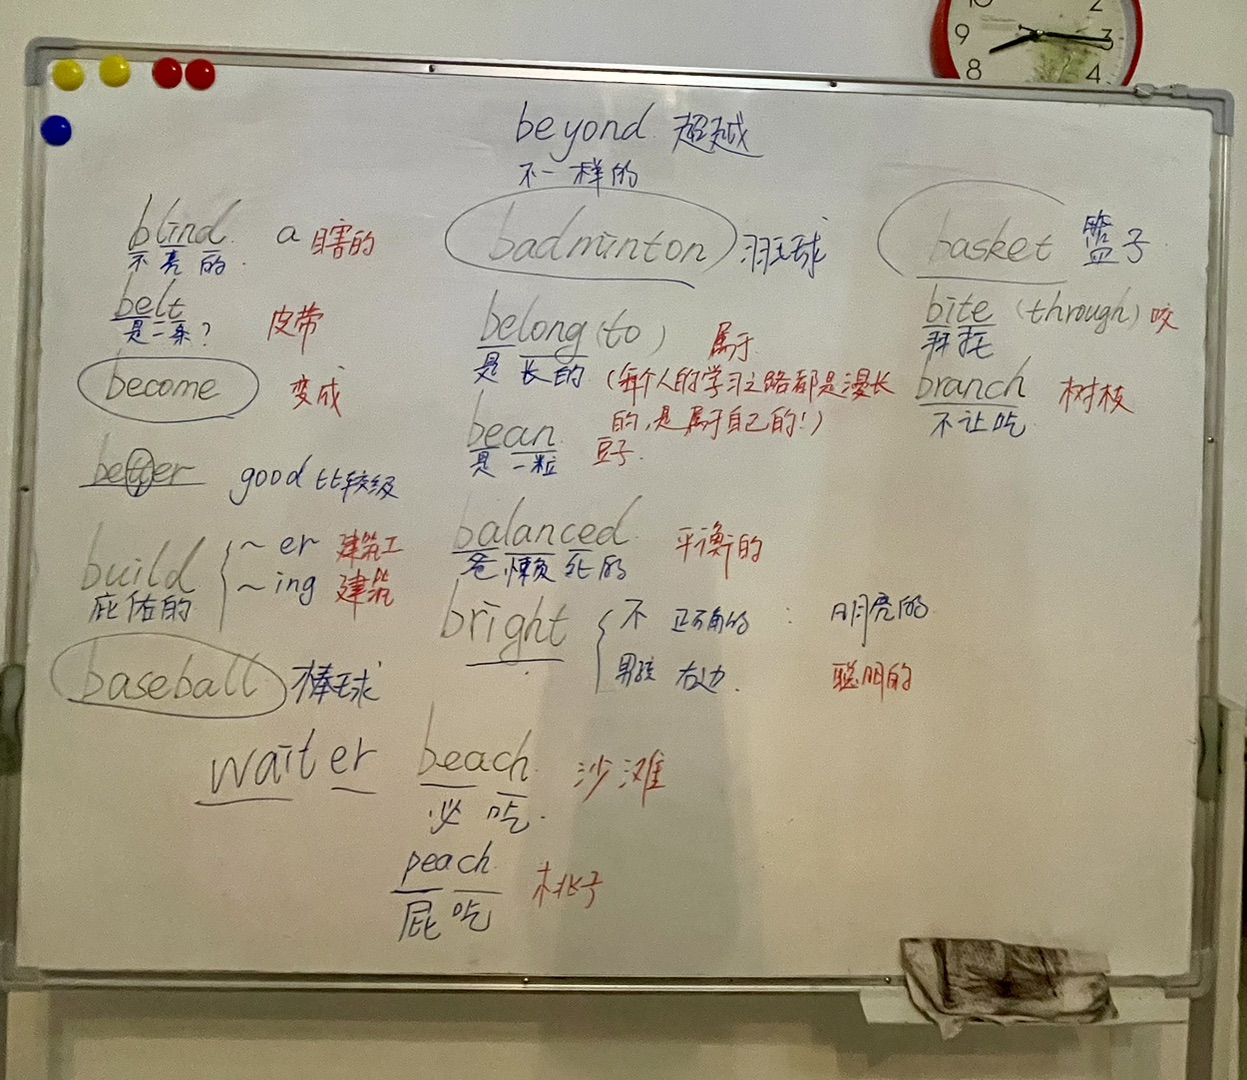 10 2
9 3
8 4
beyond 超越
不一样的
blind a 瞎的
不亮的
belt 皮带
是一条?
become 变成
better good 比较级
build ~er 建筑工
庇佑的 ~ing 建筑
baseball 棒球
badminton 羽毛球
belong (to) 属于
是 长的 (每个人的学习之路都是漫长
的,是属于自己的!)
bean 豆子.
是一粒
balanced 平衡的
爸懒死的
bright 不 正确的 : 明亮的
男孩 右边. 聪明的
basket 篮子
bite (through) 咬
拜托
branch 树枝
不让吃
waiter beach 沙滩
必吃.
peach 桃子
屁吃